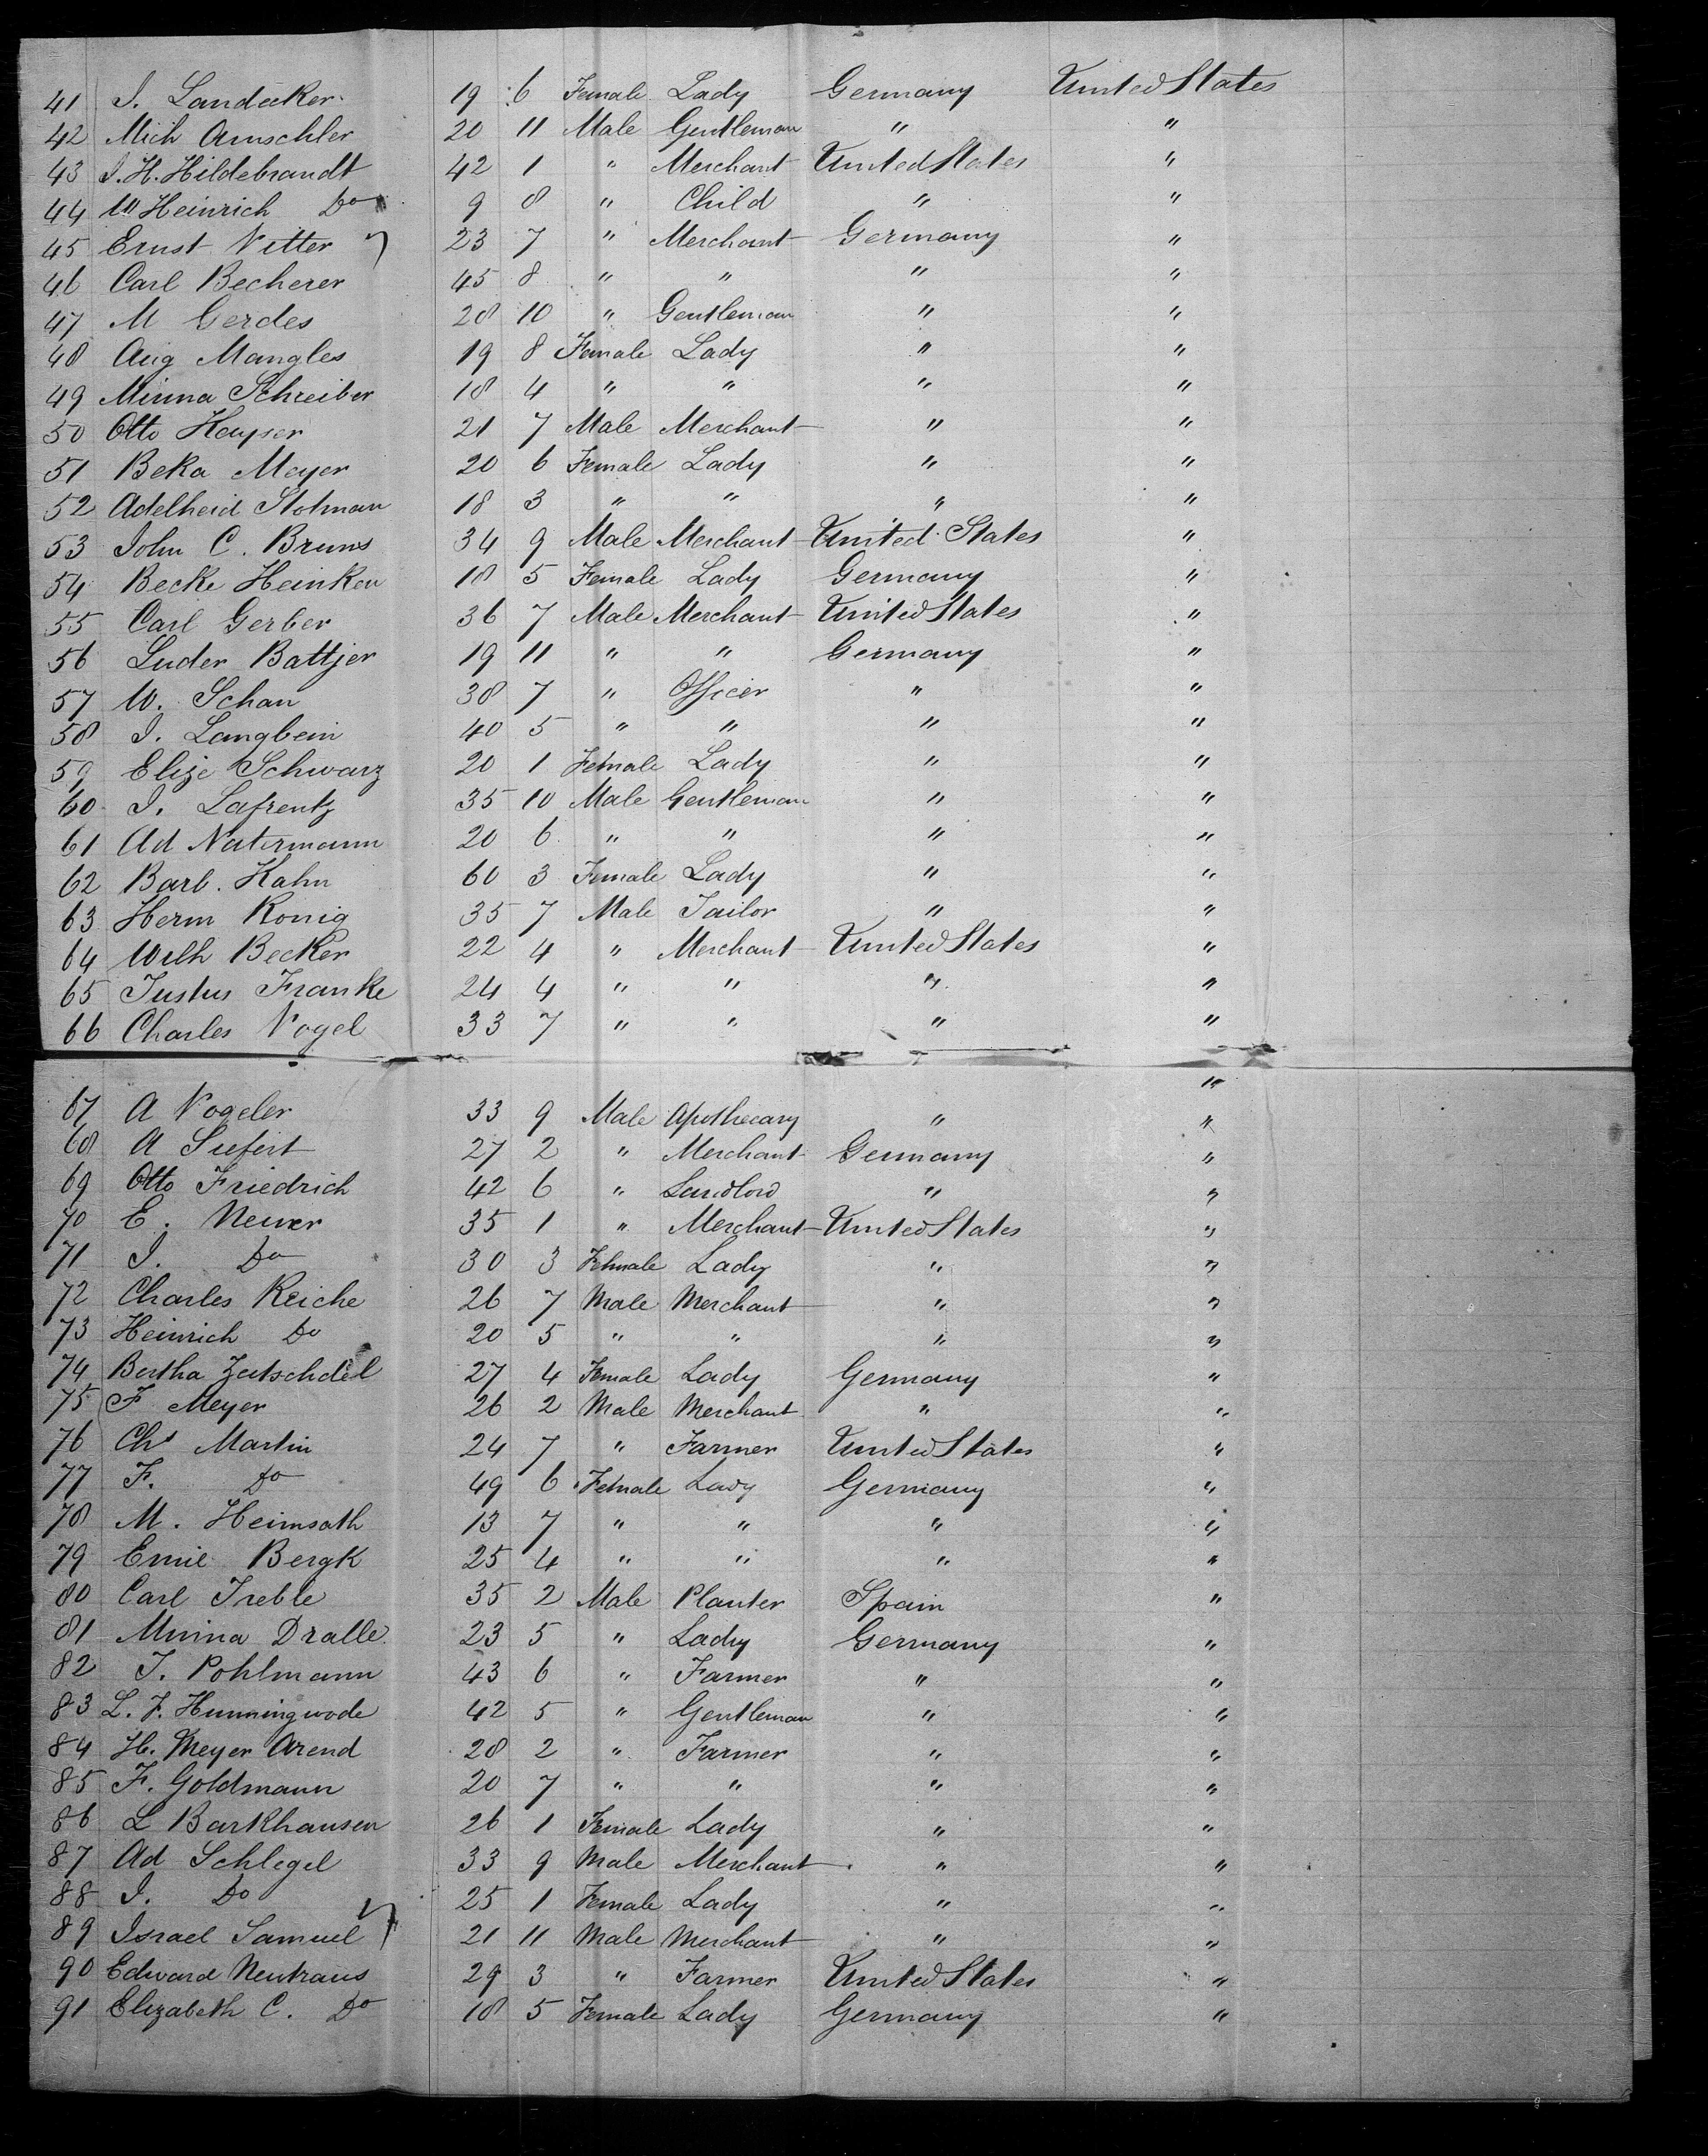 41 I. Landecker 19 6 Female Lady Germany United States
42 Mich Amschler 20 11 Male Gentleman " "
43 I. H. Hildebrandt 42 1 " Merchant United States "
44 W Heinrich Do 9 8 " Child " "
45 Ernst Vetter 23 7 " Merchant Germany "
46 Carl Becherer 45 8 " " " "
47 M Gerdes 28 10 " Gentleman " "
48 Aug Mangles 19 8 Female Lady " "
49 Minna Schreiber 18 4 " " " "
50 Otto Heyser 21 7 Male Merchant " "
51 Beka Meyer 20 6 Female Lady " "
52 Adelheid Stolman 18 3 " " " "
53 John C. Bruns 34 9 Male Merchant United States "
54 Becke Heinken 18 5 Female Lady Germany "
55 Carl Gerber 36 7 Male Merchant United States "
56 Luder Battjer 19 11 " " Germany "
57 W. Schan 38 7 " Officer " "
58 I. Langbein 40 5 " " " "
59 Elise Schwarz 20 1 Female Lady " "
60 I. Lafrentz 35 10 Male Gentleman " "
61 Ad Natermann 20 6 " " " "
62 Barb. Kahn 60 3 Female Lady " "
63 Herm Konig 35 7 Male Tailor " "
64 Wilh Becker 22 4 " Merchant United States "
65 Justus Franke 24 4 " " " "
66 Charles Vogel 33 7 " " " "
"
67 A Vogeler 33 9 Male Apothecary " "
68 A Siefert 27 2 " Merchant Germany "
69 Otto Friedrich 42 6 " Landlord " "
70 E. Newer 35 1 " Merchant United States "
71 I. Do 30 3 Female Lady " "
72 Charles Reiche 26 7 Male Merchant " "
73 Heinrich Do 20 5 " " " "
74 Bertha Zeitschdel 27 4 Female Lady Germany "
75 F Meyer 26 2 Male Merchant " "
76 Chs Martin 24 7 " Farmer United States "
77 F. Do 49 6 Female Lady Germany "
78 M. Heimsath 13 7 " " " "
79 Emie Bergk 25 4 " " " "
80 Carl Treble 35 2 Male Planter Spain "
81 Minna Dralle 23 5 " Lady Germany "
82 J. Pohlmann 43 6 " Farmer " "
83 L. F. Hunningwode 42 5 " Gentleman " "
84 H. Meyer Arend 28 2 " Farmer " "
85 F. Goldmann 20 7 " " " "
86 L Barkhausen 26 1 Female Lady " "
87 Ad Schlegel 33 9 Male Merchant " "
88 I. Do 25 1 Female Lady " "
89 Israel Samuel 21 11 Male Merchant " "
90 Edward Neutraus 29 3 " Farmer United States "
91 Elizabeth C. Do 18 5 Female Lady Germany "